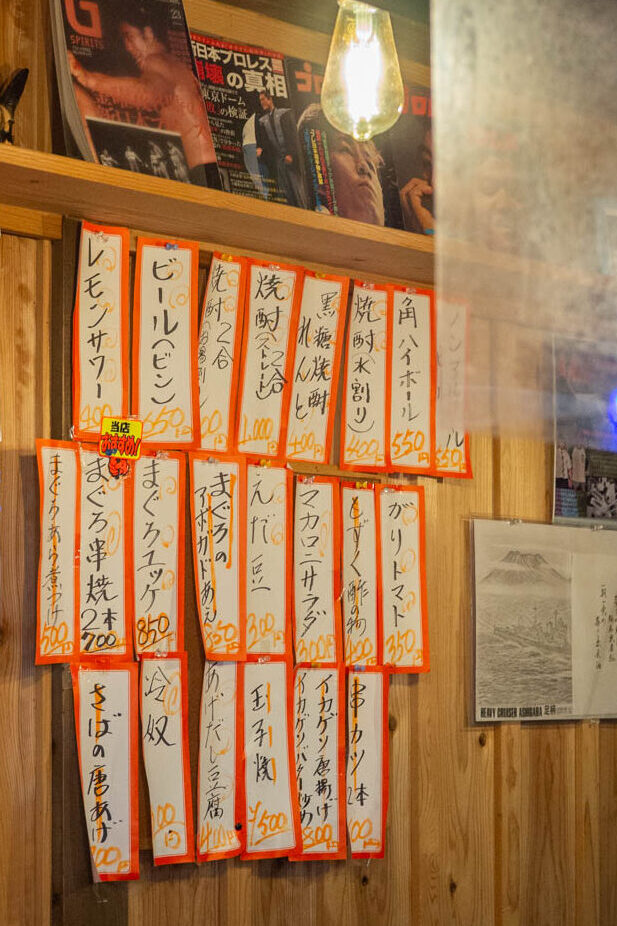 G
SPIRITS
新日本プロレス
崩壊の真相
東京ドーム
の検証
レモンサワー
400
ビール(ビン)
650円
焼酎2合
焼酎2合
(ストレート)
1,000
黒糖焼酎
れんと
400円
焼酎(水割り)
400円
角ハイボール
550円
550円
当店
おすすめ!
まぐろあら煮つけ
500円
まぐろ串焼
2本
700
まぐろユッケ
850
まぐろの
アボカドあえ
850
えだ豆
300円
マカロニサラダ
300円
もずく酢の物
400円
がりトマト
350円
さばの唐あげ
冷奴
あげだし豆腐
400円
玉子焼
¥500
イカゲソ唐揚げ
イカゲソバター炒め
800
串カツ
2本
HEAVY CRUISER ASHIGARA 足柄